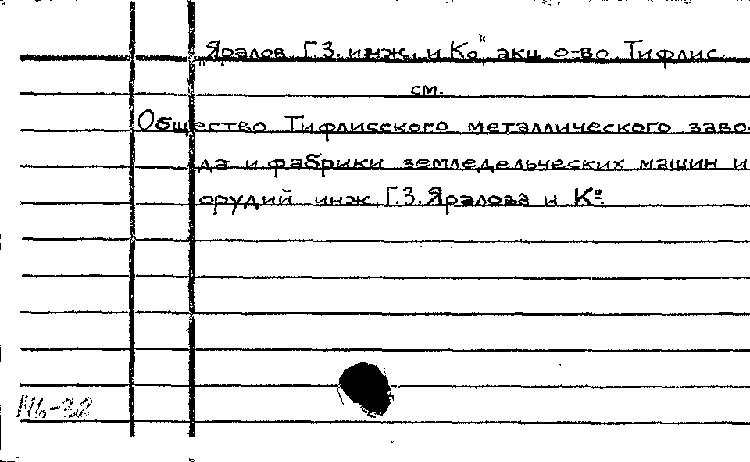 „Яралов Г.З. инж. и Ко" акц. о-во. Тифлис.
см.
Общество Тифлисского металлического заво-
да и фабрики земледельческих машин и
орудий инж. Г.З. Яралова и Ко.